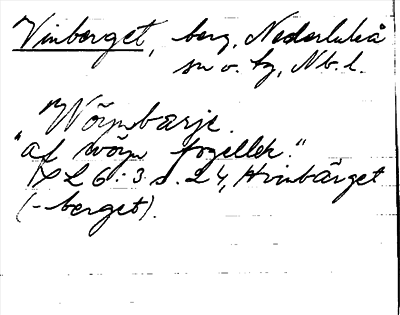 Vinberget, berg, Nederluleå
sn o. hg, Nb. l.
Wöynbærje.
"af wöyn fogellek."
IX L 6:3 s. 24, Hvinbärget
(-berget).